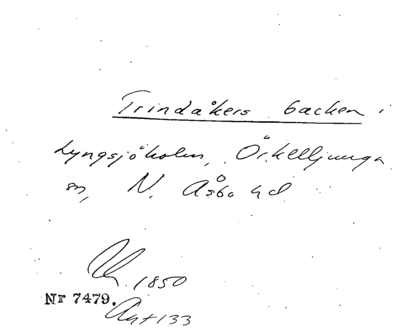 Trindåkers backen i
Lyngsjöholm, Örkelljunga
sn, N. Åsbo hd
1850
Nr 7479.
Ant 133